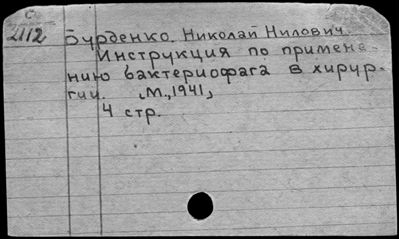 С
2112
Бурденко, Николай Нилович.
Инструкция по примене-
нию бактериофага в хирур-
гии. М., 1941,
4 стр.